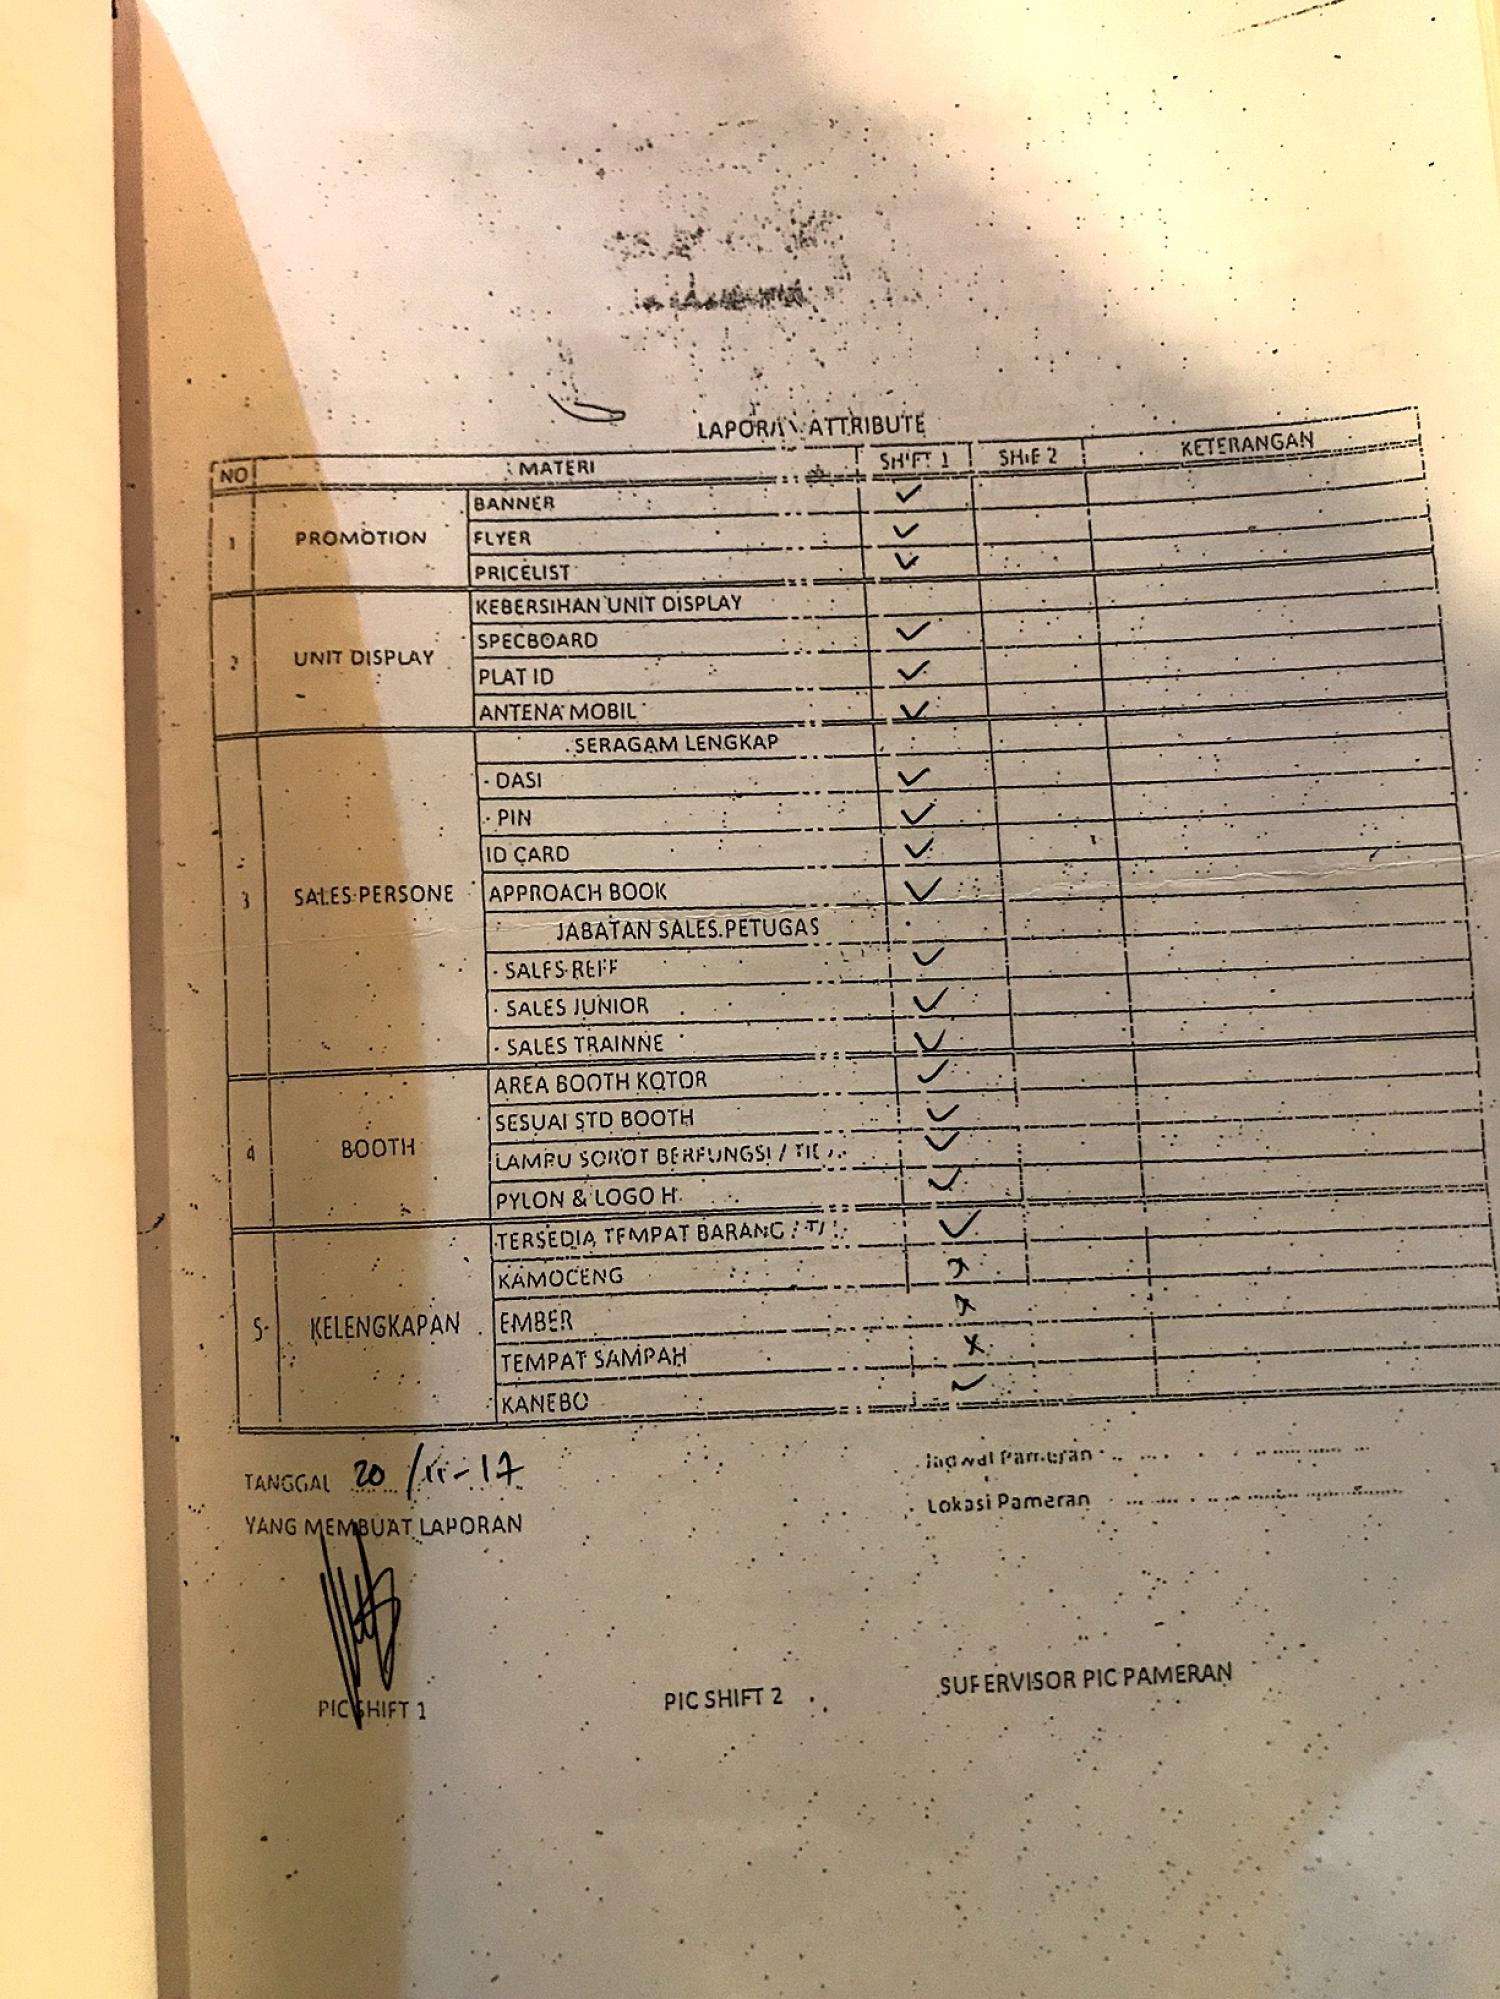 LAPORAN ATTRIBUTE
NO MATERI SHIFT 1 SHIF 2 KETERANGAN
1 PROMOTION BANNER ✓
FLYER ✓
PRICELIST ✓
2 UNIT DISPLAY KEBERSIHAN UNIT DISPLAY
SPECBOARD ✓
PLAT ID ✓
ANTENA MOBIL ✓
3 SALES PERSONE SERAGAM LENGKAP
- DASI ✓
- PIN ✓
ID CARD ✓
APPROACH BOOK ✓
JABATAN SALES PETUGAS
- SALES REFF ✓
- SALES JUNIOR ✓
- SALES TRAINNE ✓
4 BOOTH AREA BOOTH KOTOR ✓
SESUAI STD BOOTH ✓
LAMPU SOROT BERFUNGSI / ✓
PYLON & LOGO H ✓
5 KELENGKAPAN TERSEDIA TEMPAT BARANG / ✓
KAMOCENG x
EMBER x
TEMPAT SAMPAH x
KANEBO ✓
TANGGAL 20/11-17
Jadwal Pameran
Lokasi Pameran
YANG MEMBUAT LAPORAN
PIC SHIFT 1 PIC SHIFT 2 SUPERVISOR PIC PAMERAN